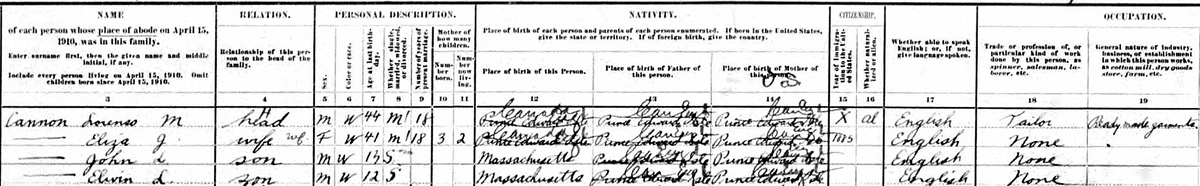 NAME
of each person whose place of abode on April 15,
1910, was in this family.
Enter surname first, then the given name and middle
initial, if any.
Include every person living on April 15, 1910. Omit
children born since April 15, 1910.
3
RELATION.
Relationship of this per-
son to the head of the
family.
4
PERSONAL DESCRIPTION.
Sex.
Color or race.
Age at last birth-
day.
Whether single,
married, widowed,
or divorced.
Number of years of
present marriage.
Mother of
how many
children.
Number
born.
Number
now liv-
ing.
5 6 7 8 9 10 11
NATIVITY.
Place of birth of each person and parents of each person enumerated. If born in the United States,
give the state or territory. If of foreign birth, give the country.
Place of birth of this Person.
Place of birth of Father of
this person.
Place of birth of Mother of
this person.
12 13 14
CITIZENSHIP.
Year of immigra-
tion to the Unit-
ed States.
Whether natural-
ized or alien.
15 16
Whether able to speak
English; or, if not,
give language spoken.
17
OCCUPATION.
Trade or profession of, or
particular kind of work
done by this person, as
spinner, salesman, la-
borer, etc.
18
General nature of industry,
business, or establishment
in which this person works,
as cotton mill, dry goods
store, farm, etc.
19
Cannon M head M W 44 M1 18 Prince Edward Isle Prince Edward Isle Prince Edward Isle X al English Tailor Ready made garments
Eliza J. wife F W 41 M1 18 3 2 Prince Edward Isle Prince Edward Isle Prince Edward English None
John L son M W 13 S Massachusetts Prince Edward Isle Prince Edward Isle English None
L. son M W 12 S Massachusetts Prince Edward Isle Prince Edward Isle English None